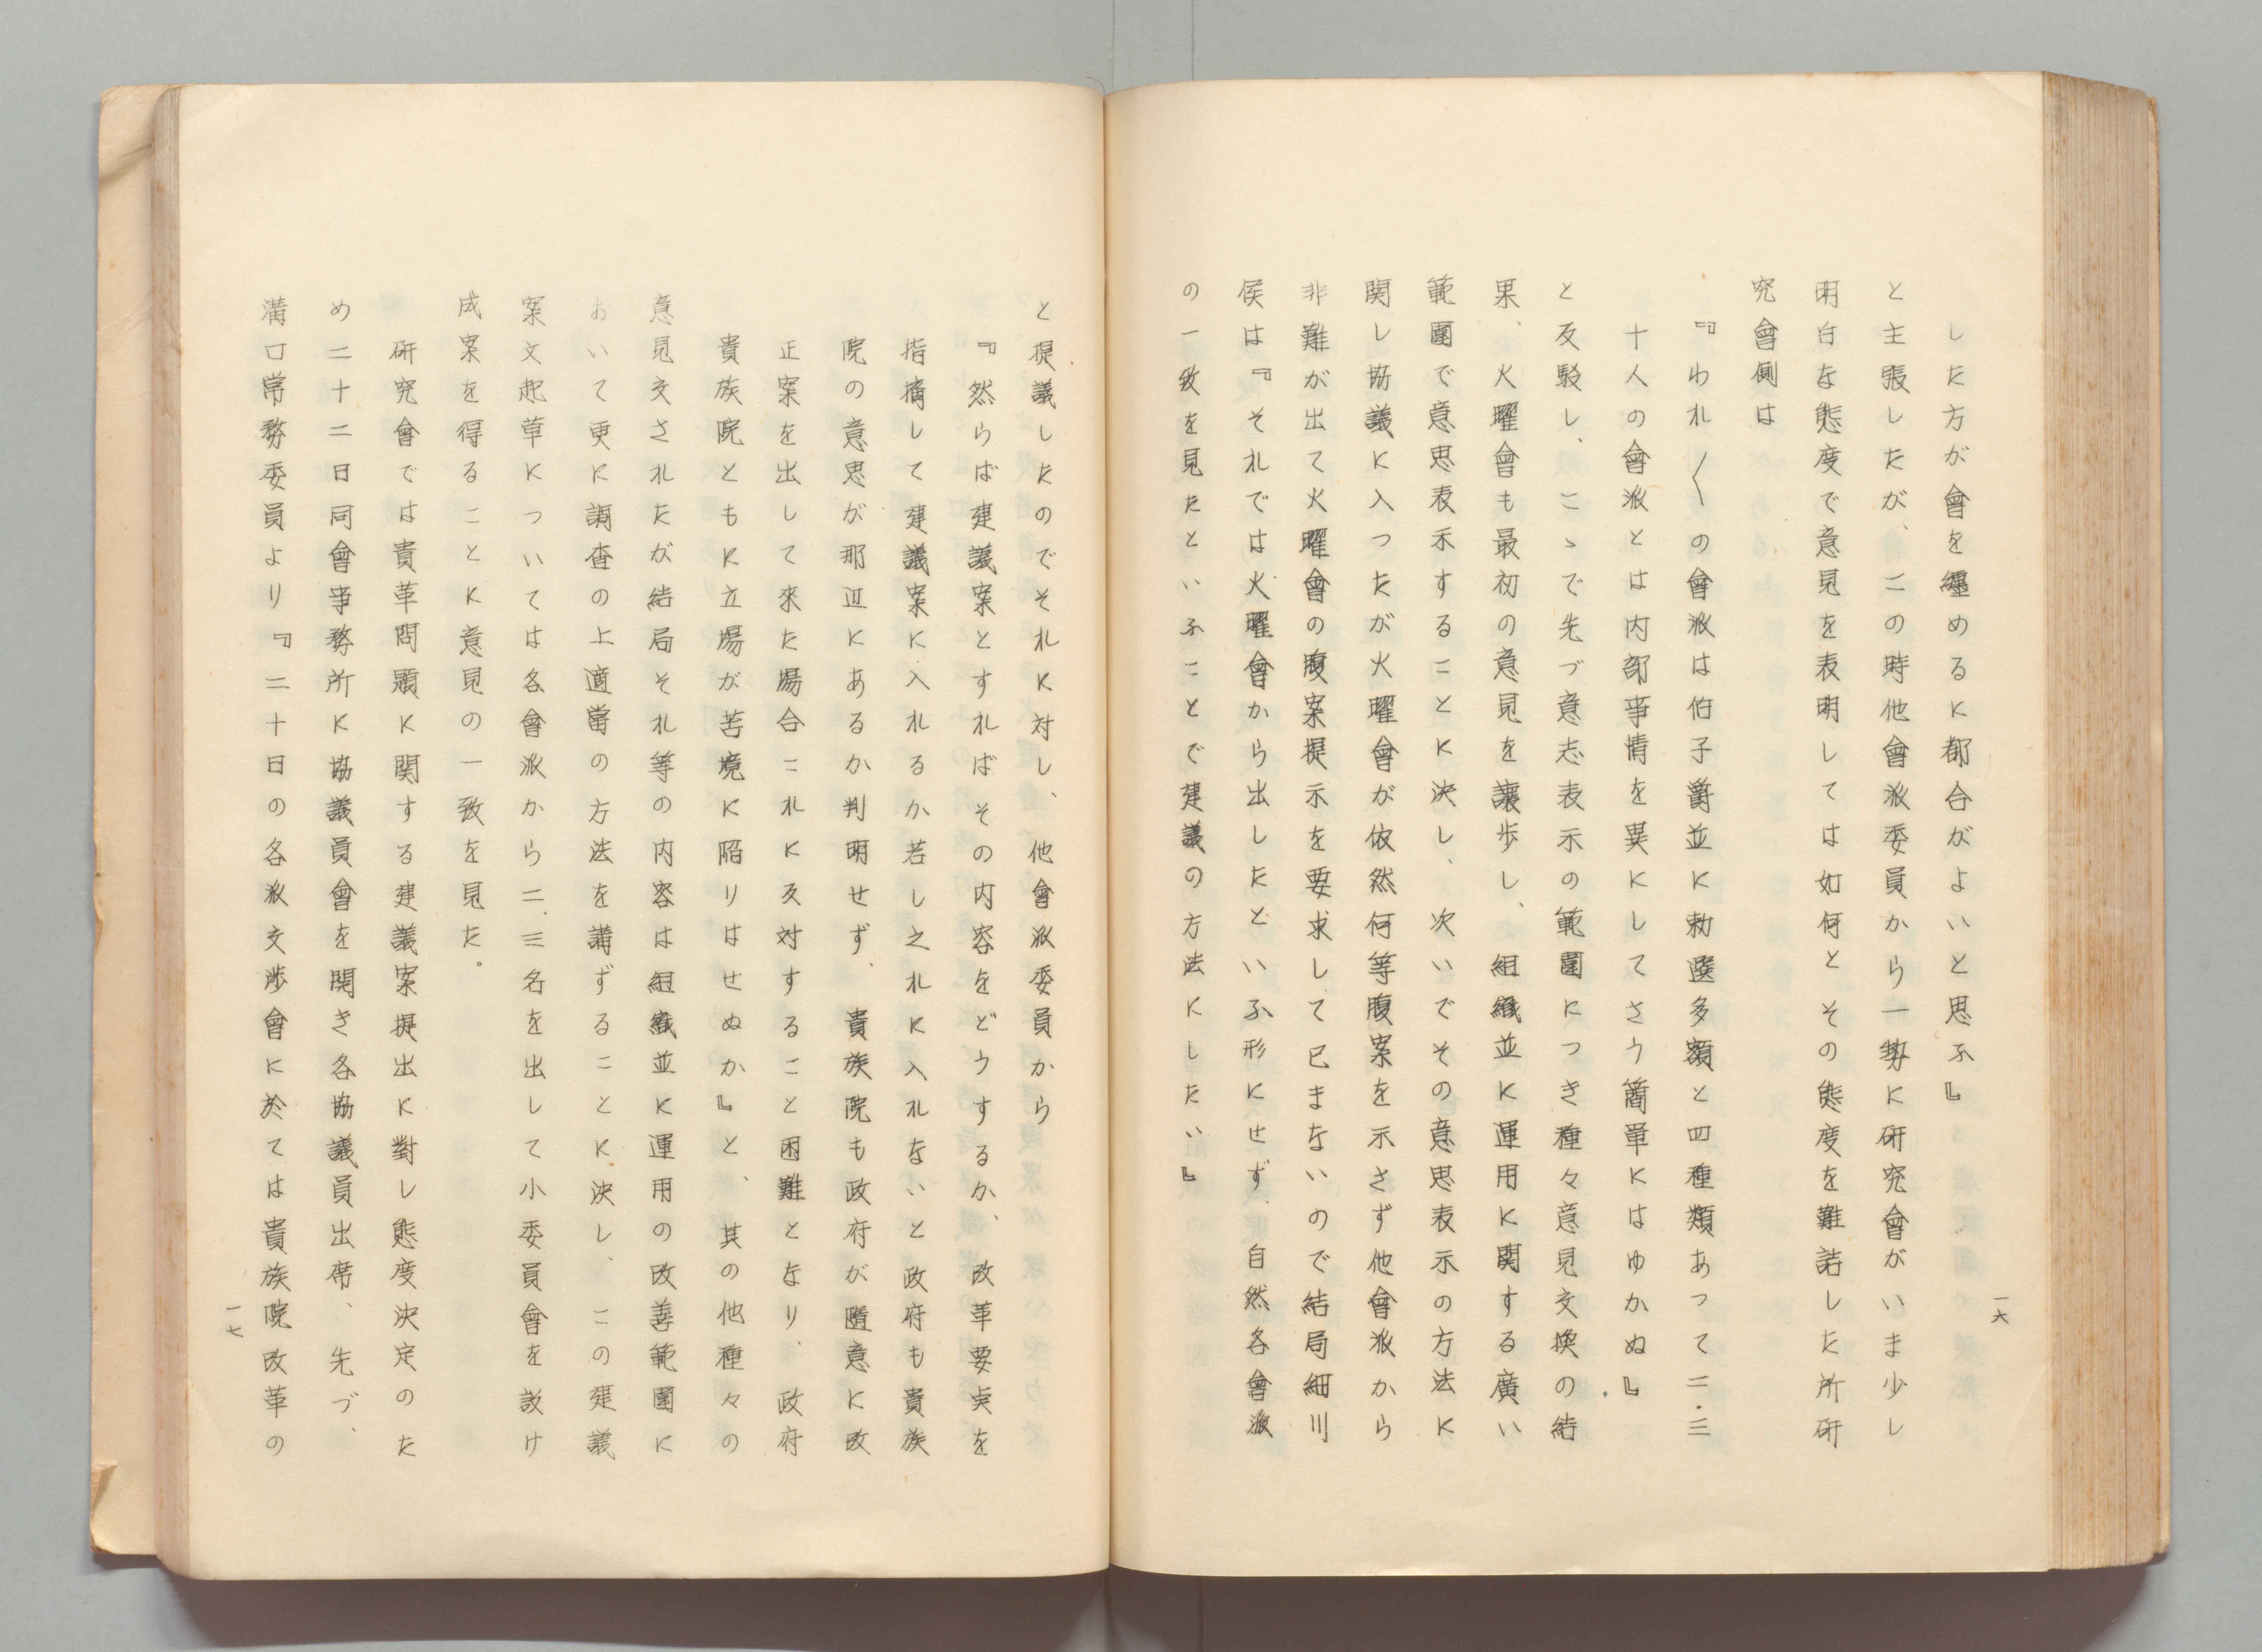 した方が會を纒めるに都合がよいと思ふ』
と主張したが、この時他會派委員から一勢に研究會がいま少し
明白な態度で意見を表明しては如何とその態度を難詰した所研
究會側は
『われ〱の會派は伯子爵並に勅選多額と四種類あつて二・三
十人の會派とは内部事情を異にしてさう簡単にはゆかぬ』
と反駁し、こゝで先づ意志表示の範圍につき種々意見交換の結
果、火曜會も最初の意見を讓歩し、組織並に運用に関する廣い
範圍で意思表示することに決し、次いでその意思表示の方法に
関し協議に入つたが火曜會が依然何等腹案を示さず他會派から
非難が出て火曜會の腹案提示を要求して已まないので結局細川
侯は『それでは火曜會から出したといふ形にせず、自然各會派
の一致を見たといふことで建議の方法にしたい』
一六
と提議したのでそれに対し、他會派委員から
『然らば建議案とすればその内容をどうするか、改革要点を
指摘して建議案に入れるか若し之れに入れないと政府も貴族
院の意思が那辺にあるか判明せず、貴族院も政府が隨意に改
正案を出して来た場合これに反対すること困難となり、政府
貴族院ともに立場が苦境に陥りはせぬか』と、其の他種々の
意見交されたが結局それ等の内容は組織並に運用の改善範圍に
おいて更に調査の上適當の方法を講ずることに決し、この建議
案文起草については各會派から二、三名を出して小委員會を設け
成案を得ることに意見の一致を見た。
研究會では貴革問題に関する建議案提出に對し態度決定のた
め二十二日同會事務所に協議員會を開き各協議員出席、先づ、
溝口常務委員より『二十日の各派交渉會に於ては貴族院改革の
一七